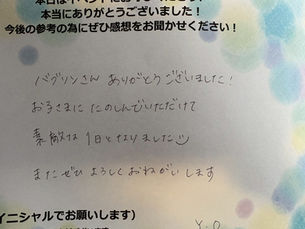 本当にありがとうございました！
今後の参考の為にぜひ感想をお聞かせください！
バグリンさん ありがとうございました！
お子さまに たのしんでいただけて
素敵な 1日となりました
またぜひ よろしく おねがいします
イニシャルでお願いします）